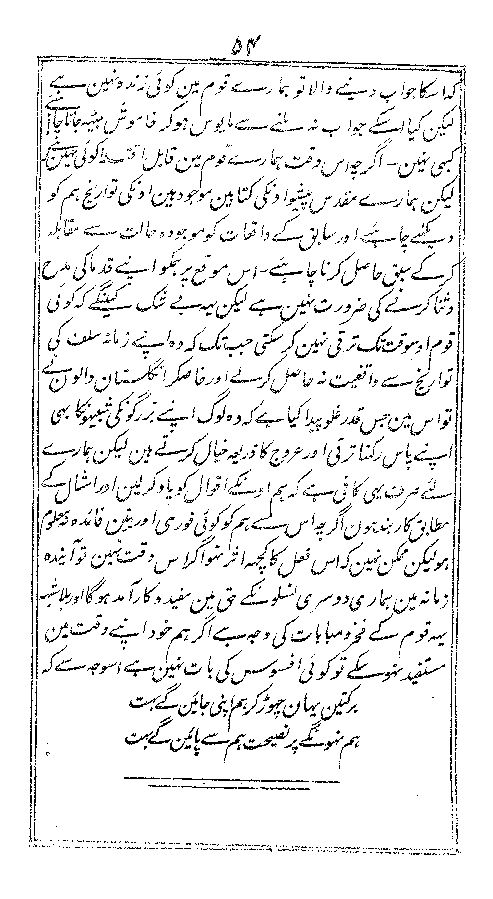 ۵۴
کہ اسکا جواب دینے والا تو ہمارے قوم مین کوئی زندہ نہین ہے
لیکن کیا اسکے جواب نہ ملنے سے مایوس ہوکر خاموش بیٹھہ جانا چاہئے
کبھی نہین۔ اگرچہ اس وقت ہمارے قوم مین قابل کوئی نہین ہے
لیکن ہمارے مقدس پیشواونکی کتابین موجود ہین اونکی تواریخ ہم کو
دیکھنے چاہئے اور سابق کے واقعات کو موجودہ حالت سے مقابلہ
کرکے سبق حاصل کرنا چاہئے۔ اس موقع پر ہمکو اپنے قدما کی مدح
و ثنا کرنے کی ضرورت نہین ہے لیکن یہہ بے شک کہینگے کہ کوئی
قوم اوسوقت تک ترقی نہین کرسکتی جب تک کہ وہ اپنے زمانہ سلف کی
تواریخ سے واقفیت نہ حاصل کرلے اور خاصکر انگلستان والون نے
تو اس مین جس قدر غلو پیدا کیا ہے کہ وہ لوگ اپنے بزرگونکی شبیہونکا بھی
اپنے پاس رکھنا ترقی اور عروج کا ذریعہ خیال کرتے ہین لیکن ہمارے
لئے صرف یہی کافی ہے کہ ہم اونکے اقوال کو یاد کرلین اور امثال کے
مطابق کاربند ہون اگرچہ اس سے ہم کو کوئی فوری اور بین فائدہ نہ معلوم
ہو لیکن ممکن نہین کہ اس فعل کا کچھہ اثر نہو اگر اس وقت نہین تو آیندہ
زمانہ مین ہماری دوسری نسلونکے حق مین مفید و کارآمد ہوگا اور بلاشبہ
یہہ قوم کے فخر و مباہات کی وجہ ہے اگر ہم خود اپنے وقت مین
مستفید نہوسکے تو کوئی افسوس کی بات نہین ہے اسوجہ سے کہ
برکتین یہان چھوڑ کر ہم اپنی جائین گے بہت
ہم نہونگے پر نصیحت ہم سے پائین گے بہت